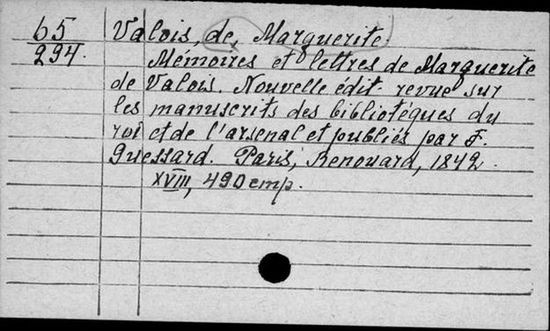 65
294.
Valois, de, Marguerite.
Mémoires et lettres de Marguerite
de Valois. Nouvelle édit. revue sur
les manuscrits des bibliotéques du
roi et de l'arsenal et publiés par F.
Guessard. Paris, Renouard, 1842.
XVIII, 490 cmp.